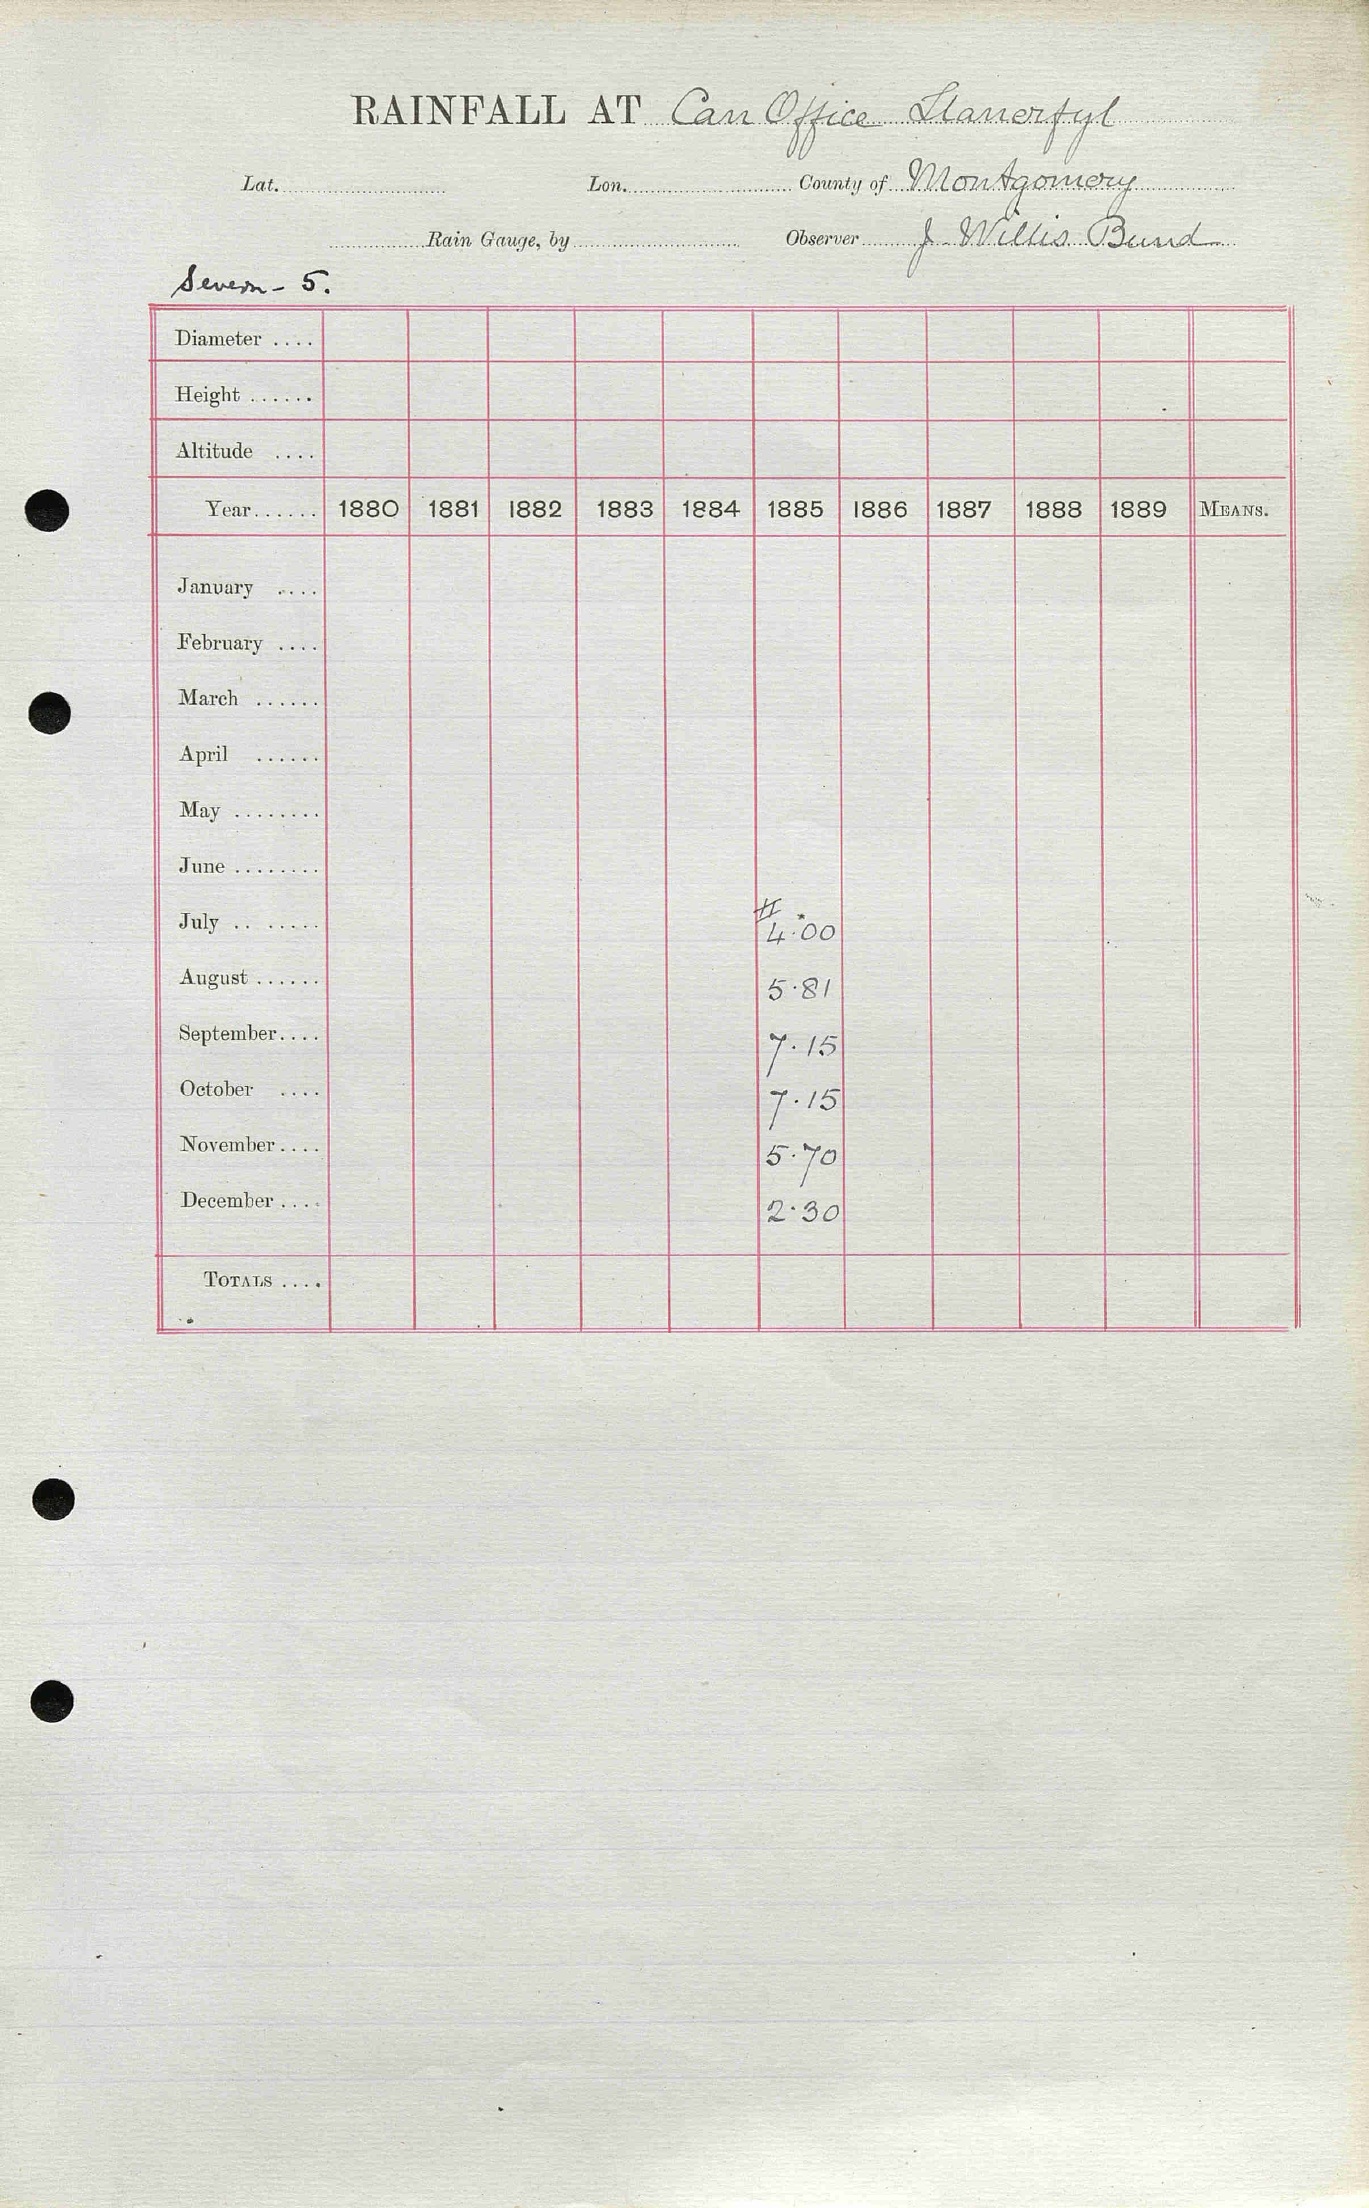 RAINFALL AT Can Office Llanerfyl
Lat. Lon. County of Montgomery
Rain Gauge, by Observer J. Willis Bund
Severn - 5.
Diameter ....
Height ......
Altitude ....
Year...... 1880 1881 1882 1883 1884 1885 1886 1887 1888 1889 MEANS.
January ....
February ....
March ......
April ......
May ........
June ........
July .. ...... 4.00
August ...... 5.81
September.... 7.15
October .... 7.15
November.... 5.70
December .... 2.30
TOTALS ....